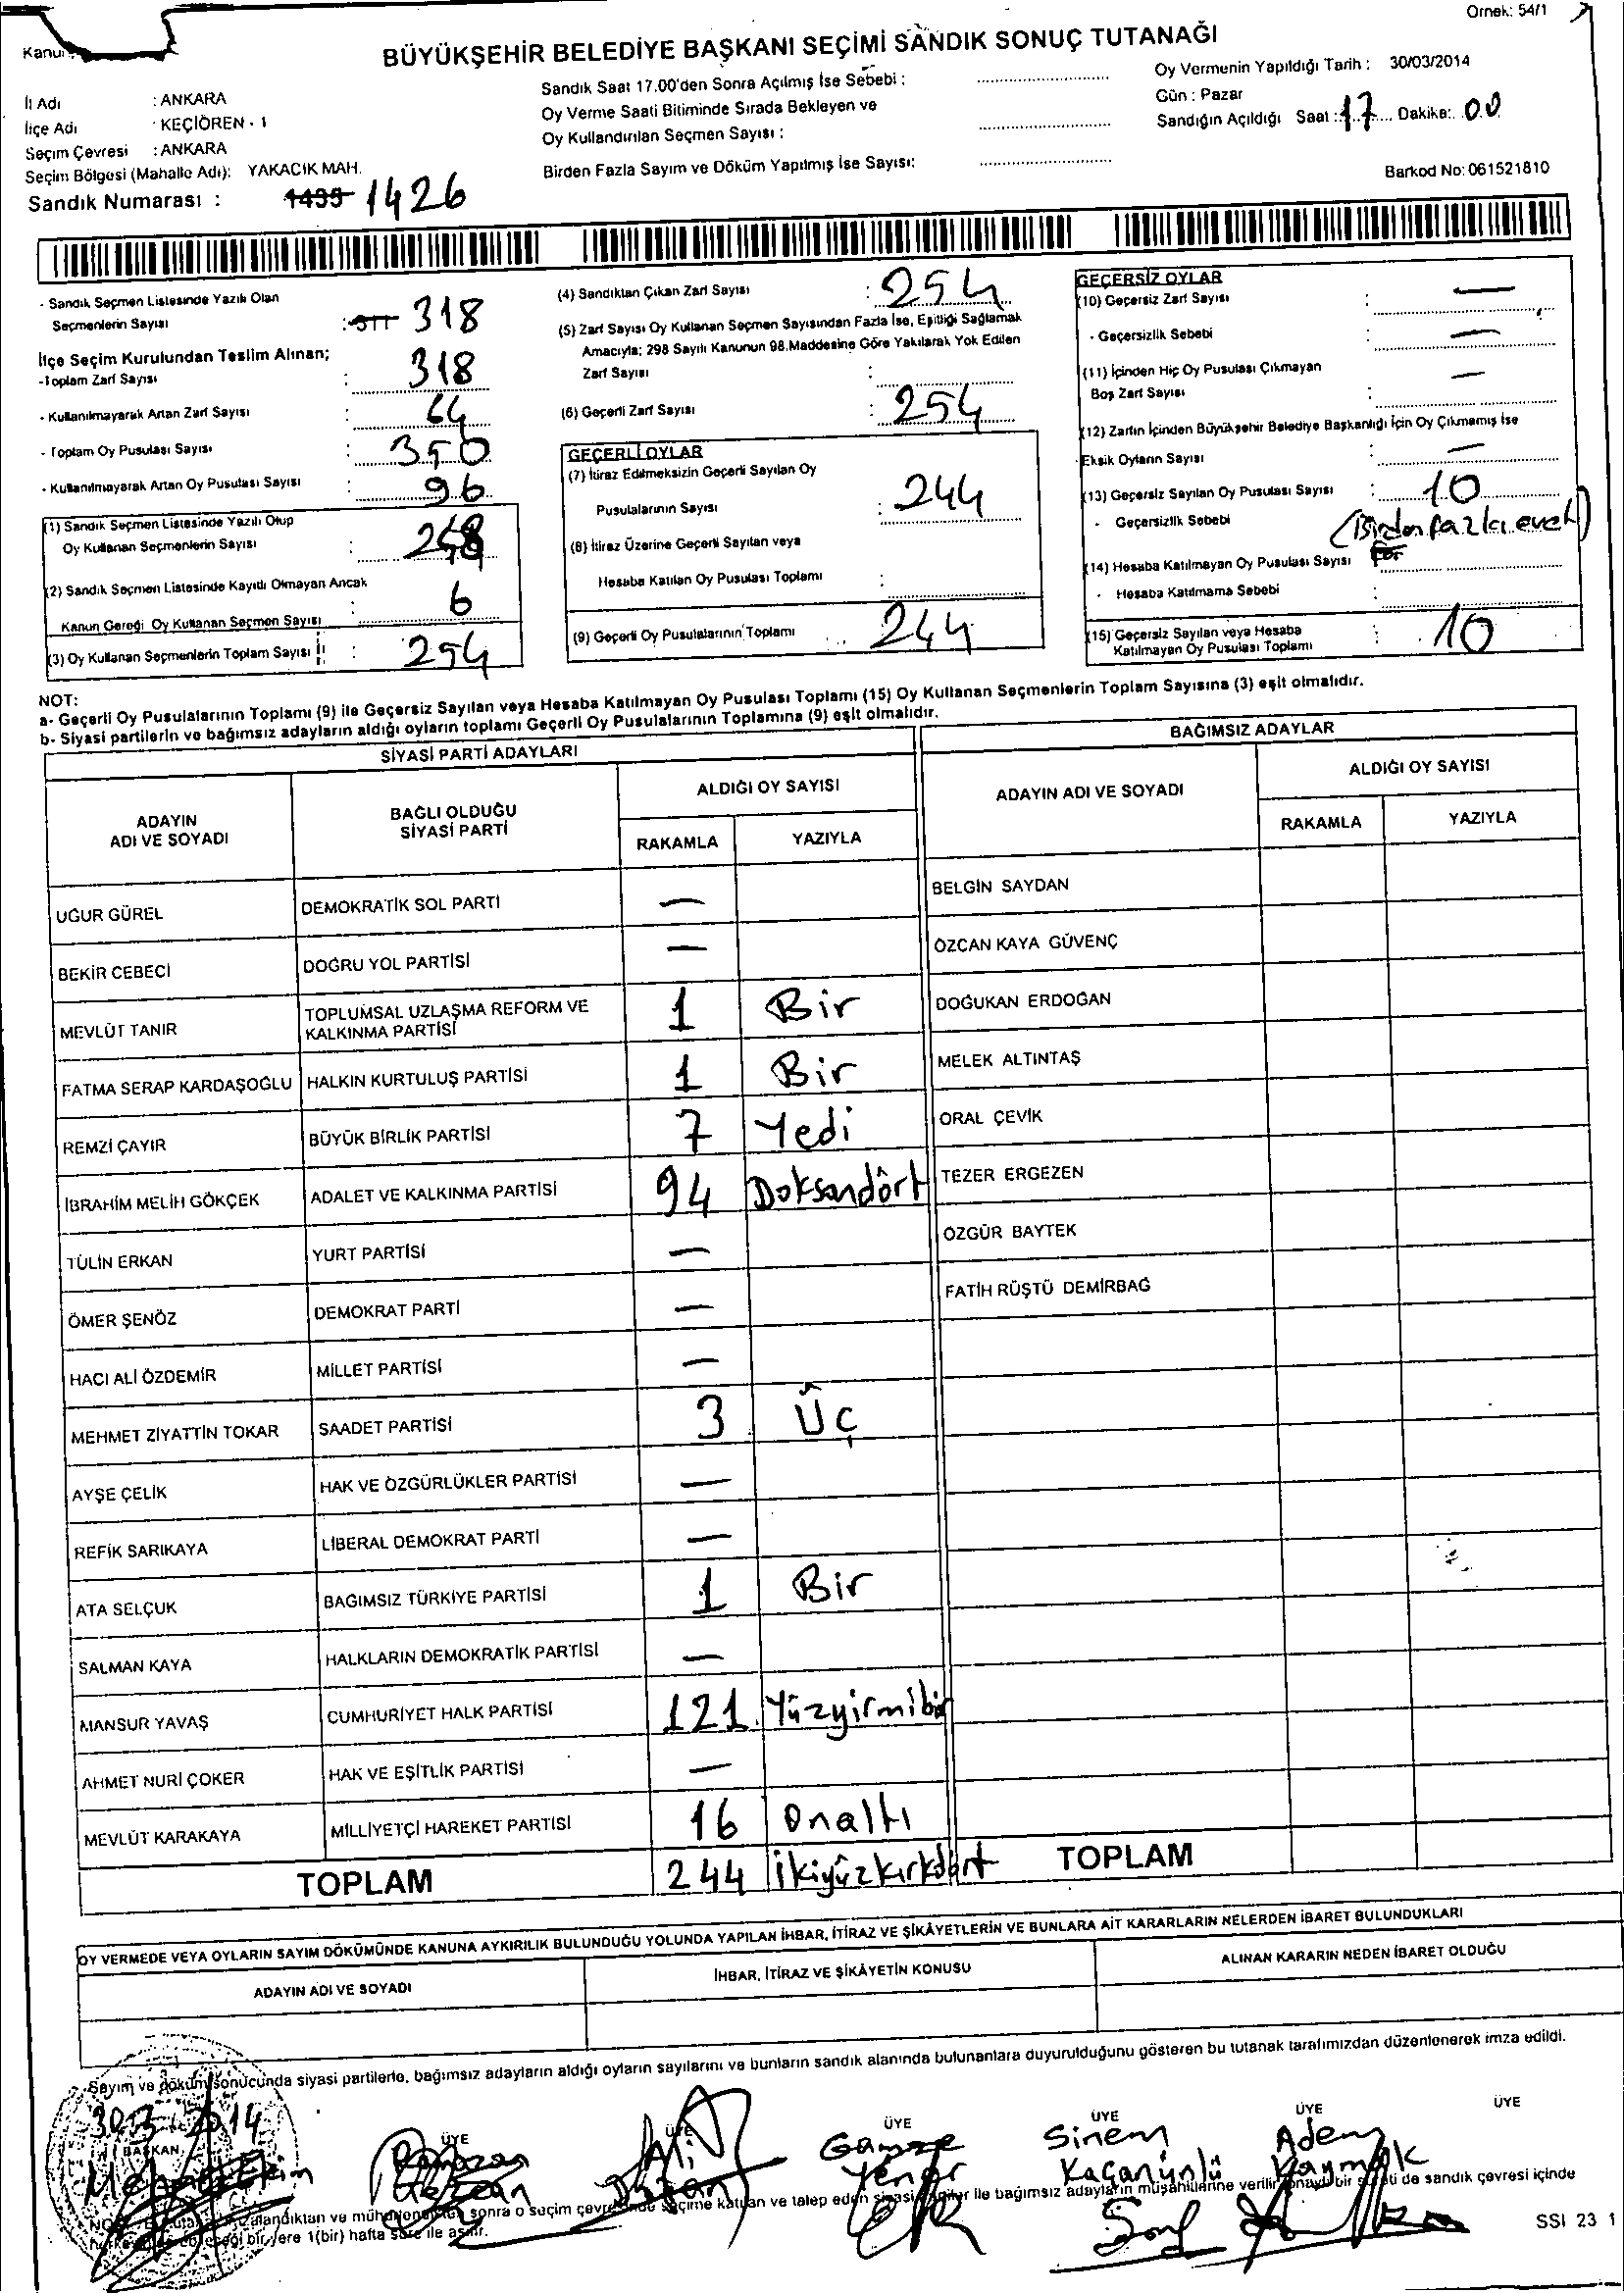 Örnek: 54/1
BÜYÜKŞEHİR BELEDİYE BAŞKANI SEÇİMİ SANDIK SONUÇ TUTANAĞI
İl Adı : ANKARA
İlçe Adı : KEÇİÖREN - 1
Seçim Çevresi : ANKARA
Seçim Bölgesi (Mahalle Adı): YAKACIK MAH.
Sandık Numarası : 1435 1426
Sandık Saat 17.00'den Sonra Açılmış İse Sebebi :
Oy Verme Saati Bitiminde Sırada Bekleyen ve
Oy Kullandırılan Seçmen Sayısı :
Birden Fazla Sayım ve Döküm Yapılmış İse Sayısı:
Oy Vermenin Yapıldığı Tarih : 30/03/2014
Gün : Pazar
Sandığın Açıldığı Saat : 17 Dakika: 00
Barkod No: 061521810
- Sandık Seçmen Listesinde Yazılı Olan
Seçmenlerin Sayısı : 311 318
İlçe Seçim Kurulundan Teslim Alınan;
-Toplam Zarf Sayısı : 318
- Kullanılmayarak Artan Zarf Sayısı : 64
- Toplam Oy Pusulası Sayısı : 350
- Kullanılmayarak Artan Oy Pusulası Sayısı : 96
(1) Sandık Seçmen Listesinde Yazılı Olup
Oy Kullanan Seçmenlerin Sayısı : 248
(2) Sandık Seçmen Listesinde Kayıtlı Olmayan Ancak
Kanun Gereği Oy Kullanan Seçmen Sayısı : 6
(3) Oy Kullanan Seçmenlerin Toplam Sayısı : 254
(4) Sandıktan Çıkan Zarf Sayısı : 254
(5) Zarf Sayısı Oy Kullanan Seçmen Sayısından Fazla İse, Eşitliği Sağlamak
Amacıyla; 298 Sayılı Kanunun 98.Maddesine Göre Yakılarak Yok Edilen
Zarf Sayısı :
(6) Geçerli Zarf Sayısı : 254
GEÇERLİ OYLAR
(7) İtiraz Edilmeksizin Geçerli Sayılan Oy
Pusulalarının Sayısı : 244
(8) İtiraz Üzerine Geçerli Sayılan veya
Hesaba Katılan Oy Pusulası Toplamı :
(9) Geçerli Oy Pusulalarının Toplamı 244
GEÇERSİZ OYLAR
(10) Geçersiz Zarf Sayısı : —
- Geçersizlik Sebebi : —
(11) İçinden Hiç Oy Pusulası Çıkmayan
Boş Zarf Sayısı : —
(12) Zarfın İçinden Büyükşehir Belediye Başkanlığı İçin Oy Çıkmamış İse
Eksik Oyların Sayısı : —
(13) Geçersiz Sayılan Oy Pusulası Sayısı : 10
- Geçersizlik Sebebi (Birden fazla evet)
(14) Hesaba Katılmayan Oy Pusulası Sayısı
- Hesaba Katılmama Sebebi :
(15) Geçersiz Sayılan veya Hesaba
Katılmayan Oy Pusulası Toplamı : 10
NOT:
a- Geçerli Oy Pusulalarının Toplamı (9) ile Geçersiz Sayılan veya Hesaba Katılmayan Oy Pusulası Toplamı (15) Oy Kullanan Seçmenlerin Toplam Sayısına (3) eşit olmalıdır.
b- Siyasi partilerin ve bağımsız adayların aldığı oyların toplamı Geçerli Oy Pusulalarının Toplamına (9) eşit olmalıdır.
SİYASİ PARTİ ADAYLARI
BAĞIMSIZ ADAYLAR
ADAYIN ADI VE SOYADI
BAĞLI OLDUĞU SİYASİ PARTİ
ALDIĞI OY SAYISI
RAKAMLA YAZIYLA
ADAYIN ADI VE SOYADI
ALDIĞI OY SAYISI
RAKAMLA YAZIYLA
UĞUR GÜREL DEMOKRATİK SOL PARTİ — BELGİN SAYDAN
BEKİR CEBECİ DOĞRU YOL PARTİSİ — ÖZCAN KAYA GÜVENÇ
MEVLÜT TANIR TOPLUMSAL UZLAŞMA REFORM VE KALKINMA PARTİSİ 1 Bir DOĞUKAN ERDOĞAN
FATMA SERAP KARDAŞOĞLU HALKIN KURTULUŞ PARTİSİ 1 Bir MELEK ALTINTAŞ
REMZİ ÇAYIR BÜYÜK BİRLİK PARTİSİ 7 Yedi ORAL ÇEVİK
İBRAHİM MELİH GÖKÇEK ADALET VE KALKINMA PARTİSİ 94 Doksandört TEZER ERGEZEN
TÜLİN ERKAN YURT PARTİSİ — ÖZGÜR BAYTEK
ÖMER ŞENÖZ DEMOKRAT PARTİ — FATİH RÜŞTÜ DEMİRBAĞ
HACI ALİ ÖZDEMİR MİLLET PARTİSİ —
MEHMET ZİYATTİN TOKAR SAADET PARTİSİ 3 Üç
AYŞE ÇELİK HAK VE ÖZGÜRLÜKLER PARTİSİ —
REFİK SARIKAYA LİBERAL DEMOKRAT PARTİ —
ATA SELÇUK BAĞIMSIZ TÜRKİYE PARTİSİ 1 Bir
SALMAN KAYA HALKLARIN DEMOKRATİK PARTİSİ —
MANSUR YAVAŞ CUMHURİYET HALK PARTİSİ 121 Yüzyirmibir
AHMET NURİ ÇOKER HAK VE EŞİTLİK PARTİSİ —
MEVLÜT KARAKAYA MİLLİYETÇİ HAREKET PARTİSİ 16 Onaltı
TOPLAM 244 İkiyüzkırkdört TOPLAM
OY VERMEDE VEYA OYLARIN SAYIM DÖKÜMÜNDE KANUNA AYKIRILIK BULUNDUĞU YOLUNDA YAPILAN İHBAR, İTİRAZ VE ŞİKÂYETLERİN VE BUNLARA AİT KARARLARIN NELERDEN İBARET BULUNDUKLARI
ADAYIN ADI VE SOYADI İHBAR, İTİRAZ VE ŞİKÂYETİN KONUSU ALINAN KARARIN NEDEN İBARET OLDUĞU
Sayım ve döküm sonucunda siyasi partilerle, bağımsız adayların aldığı oyların sayılarını ve bunların sandık alanında bulunanlara duyurulduğunu gösteren bu tutanak tarafımızdan düzenlenerek imza edildi.
30.3.2014
BAŞKAN ÜYE ÜYE ÜYE ÜYE ÜYE ÜYE
Ramazan Gamze Yener Sinem Kaçanünlü Adem Kaymak
sonra o seçim ve talep eden ile bağımsız adayların müşahitlerine de sandık çevresi içinde
bir yere 1(bir) hafta süre ile asılır.
SSI 23 1